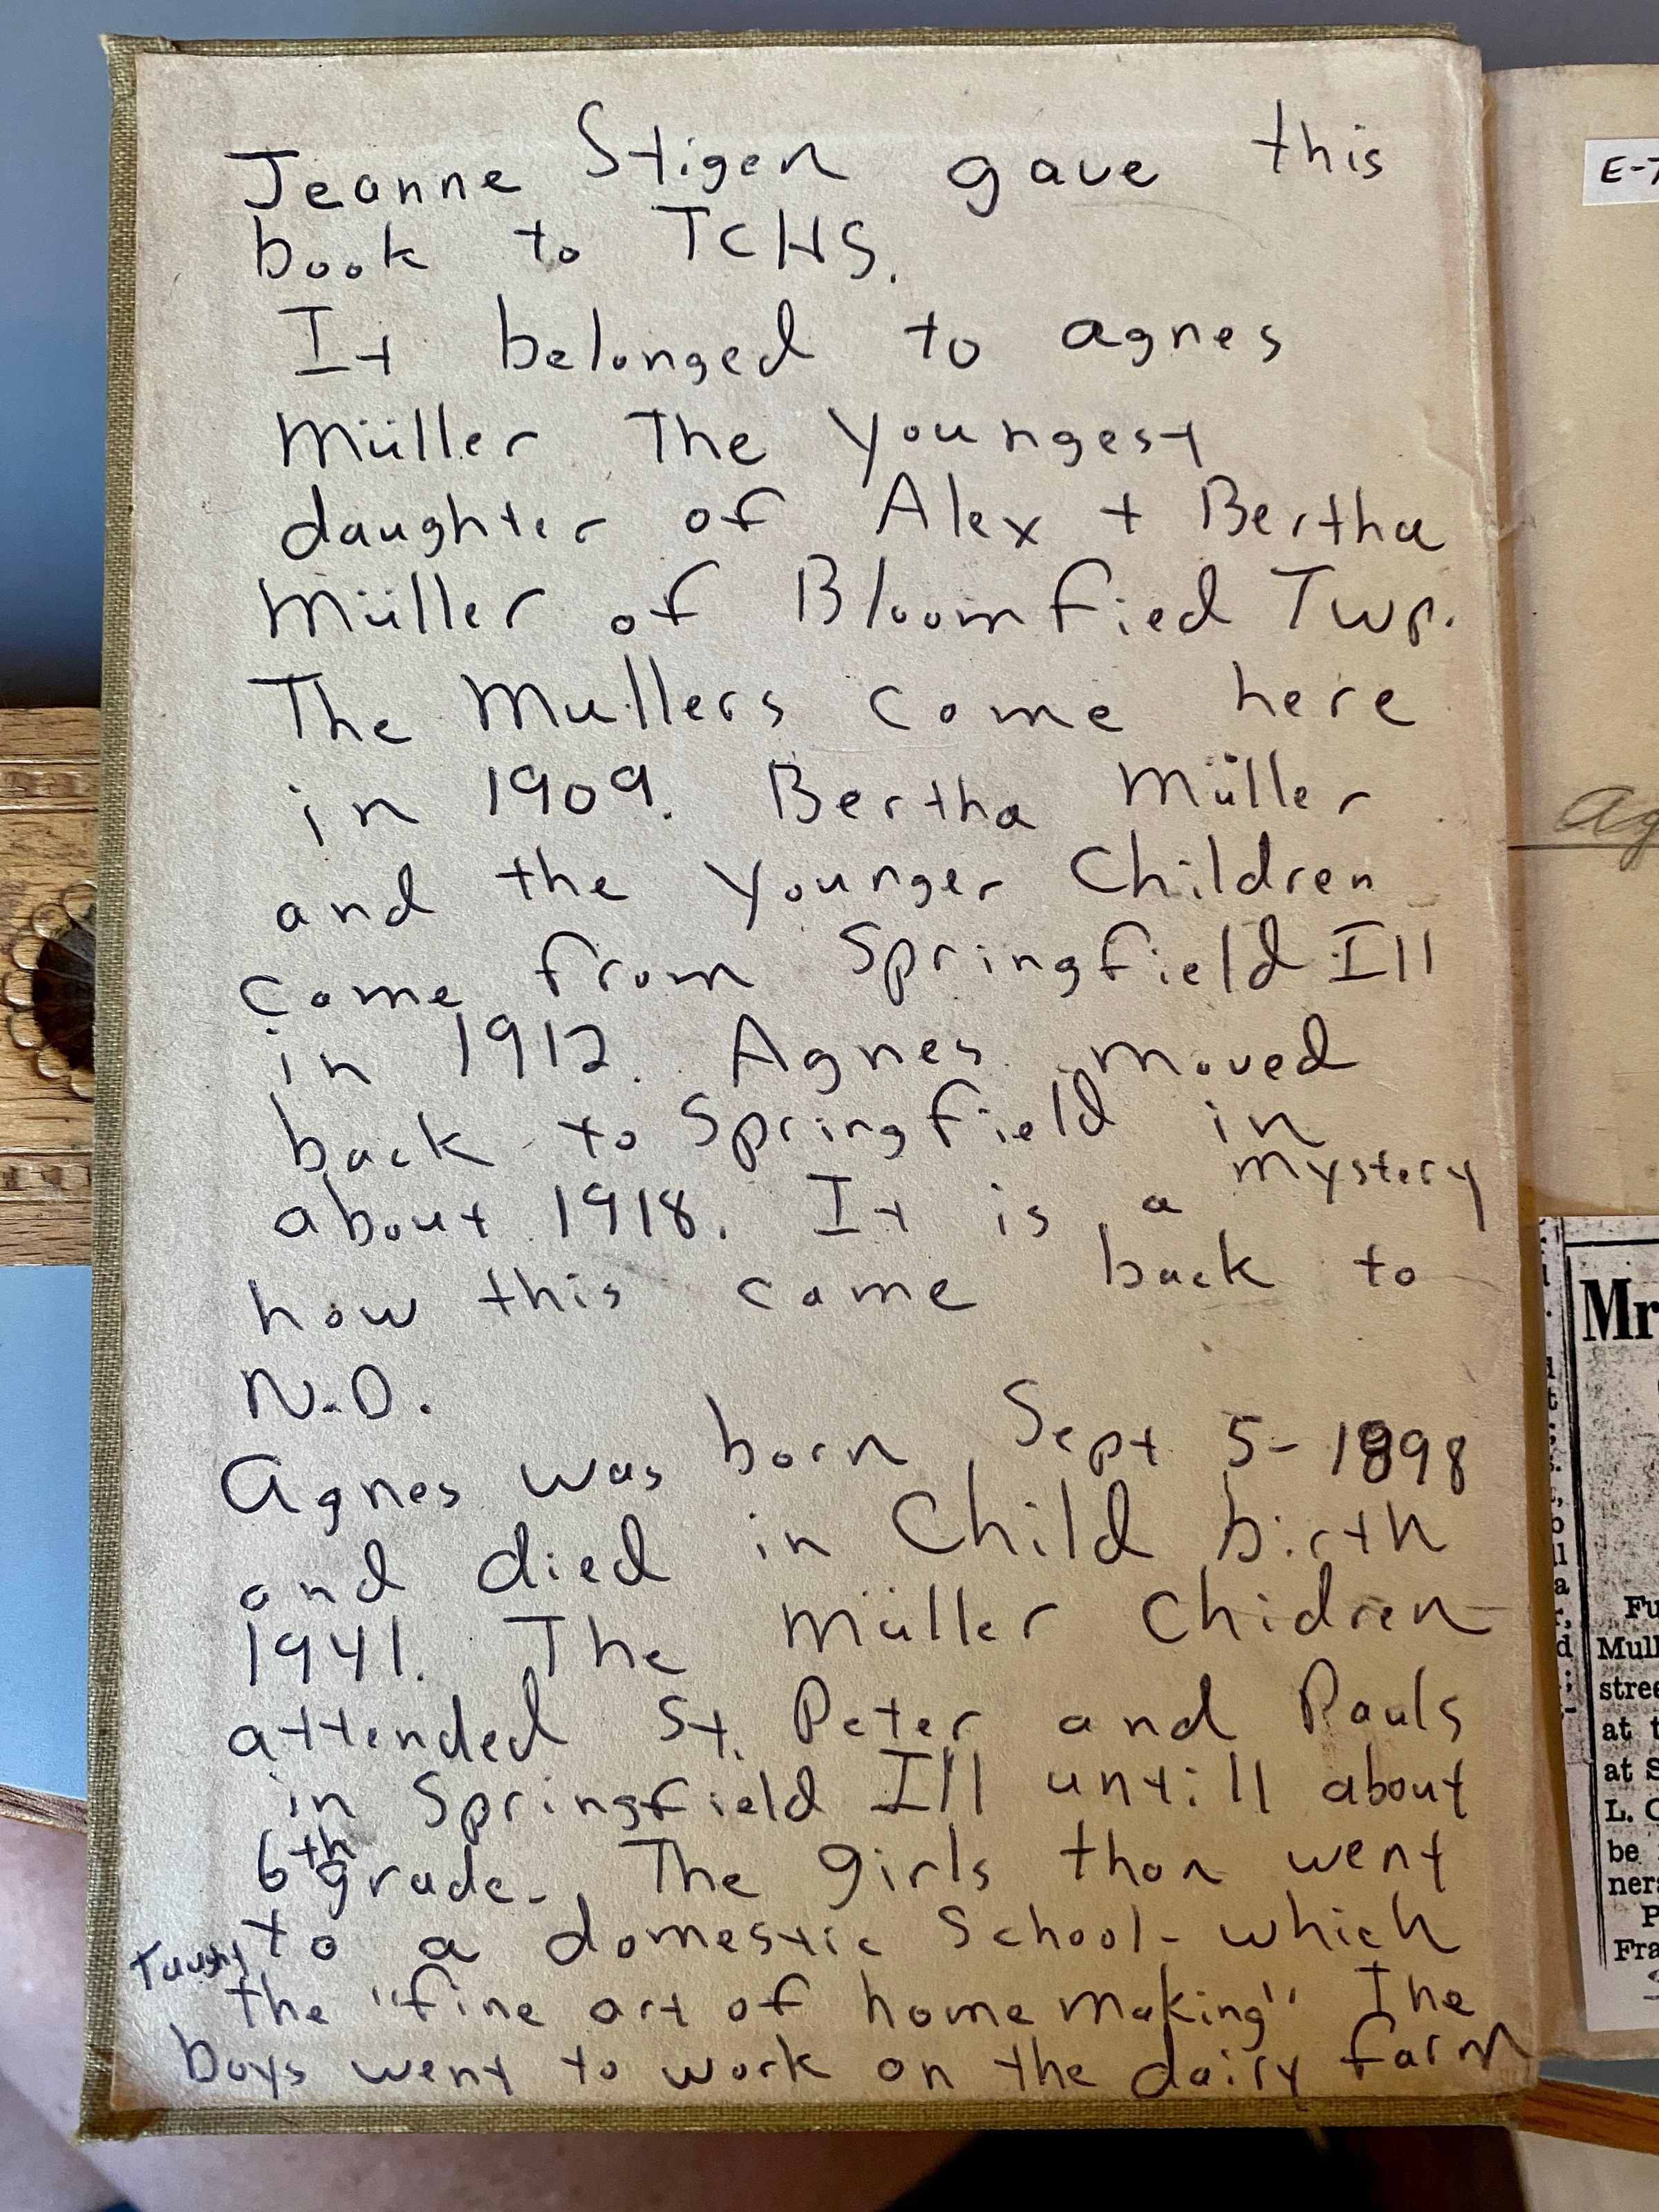 Jeanne Stigen gave this
book to TCHS.
It belonged to agnes
Müller The Youngest
daughter of Alex + Bertha
Müller of Bloomfied Twp.
The Mullers come here
in 1909. Bertha Müller
and the Younger Children
come from Springfield Ill
in 1912. Agnes moved
back to Springfield in
about 1918. It is a mystery
how this came back to
N.D.
Agnes was born Sept 5-1898
and died in Child birth
1941. The Müller Chidren
attended St. Peter and Pauls
in Springfield Ill untill about
6th grade. The girls than went
to a domestic School - which
Taught the "fine art of home making" The
boys went to work on the dairy farm
E-7
ag
Mr
Fu
Mull
stree
at t
at S
L. C
be
ners
P
Fra